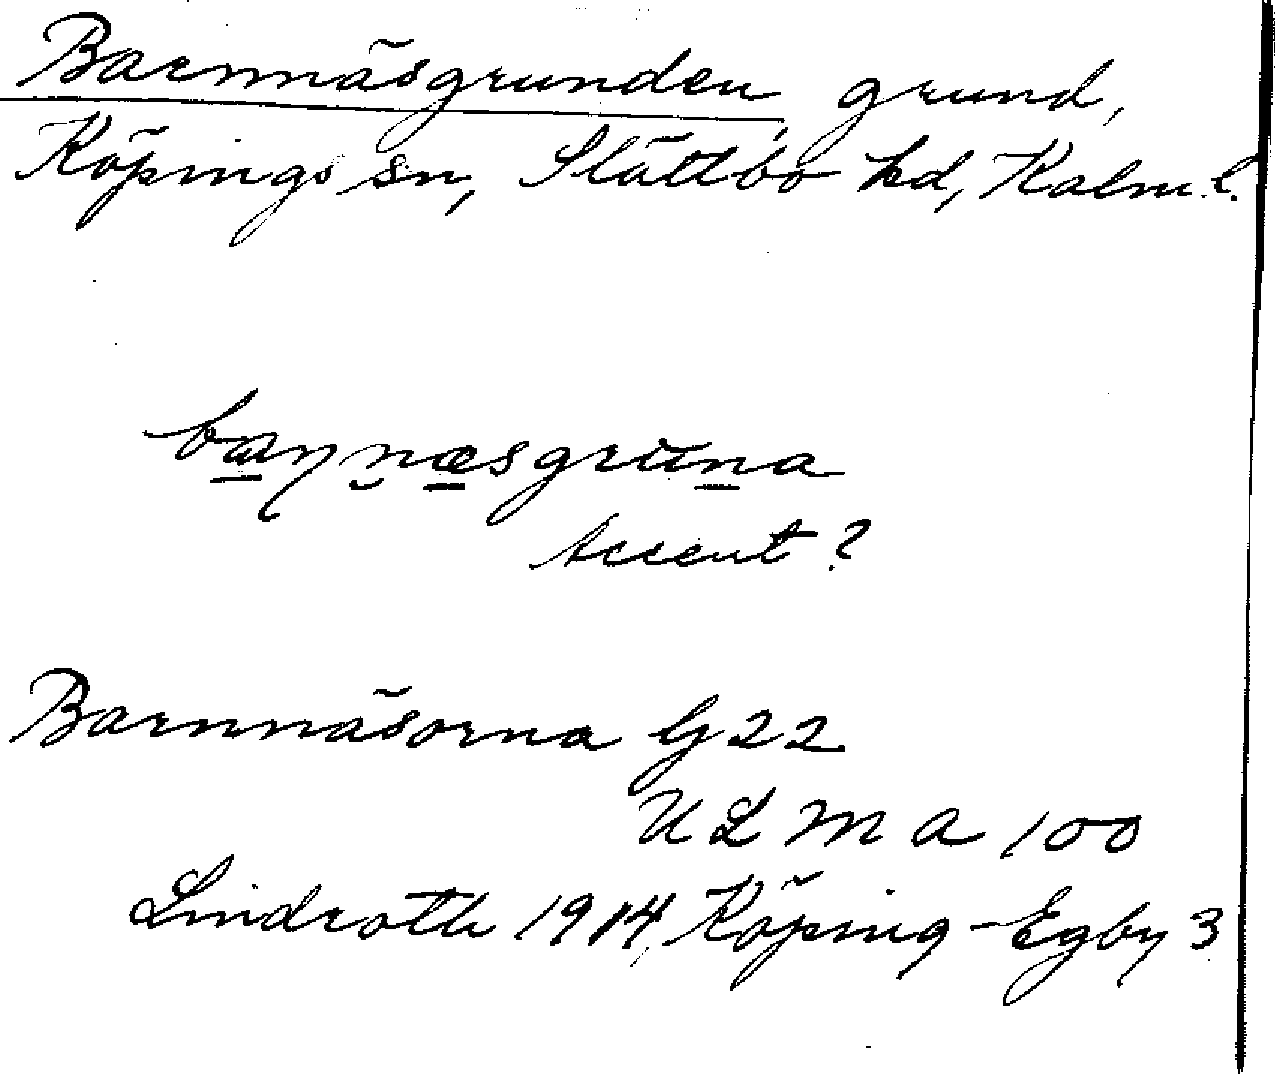 Barnnäsgrunden, grund,
Köpings sn, Slättbo hd, Kalm. l.
baṇn̯æsgruna
Accent?
Barnnäsorna G 22
ULMA 100
Lindroth 1914, Köping-Egby 3